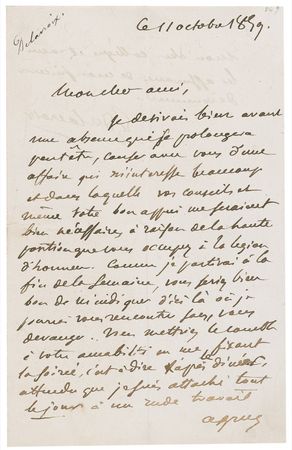 Delacroix.
Ce 11 octobre 1859.
Mon cher ami,
Je désirais bien avant
une absence que je prolongerai
peut être, causer avec vous d'une
affaire qui m'intéresse beaucoup
et dans laquelle vos conseils et
même votre bon appui me seraient
bien nécessaires à raison de la haute
position que vous occupez à la légion
d'honneur. Comme je partirai à la
fin de la semaine, vous seriez bien
bon de m'indiquer d'ici là où je
pourrai vous rencontrer sans vous
déranger. Vous mettriez le comble
à votre amabilité en me fixant
la soirée, c'est à dire l'après diner,
attendu que je suis attaché tout
le jour à un rude travail